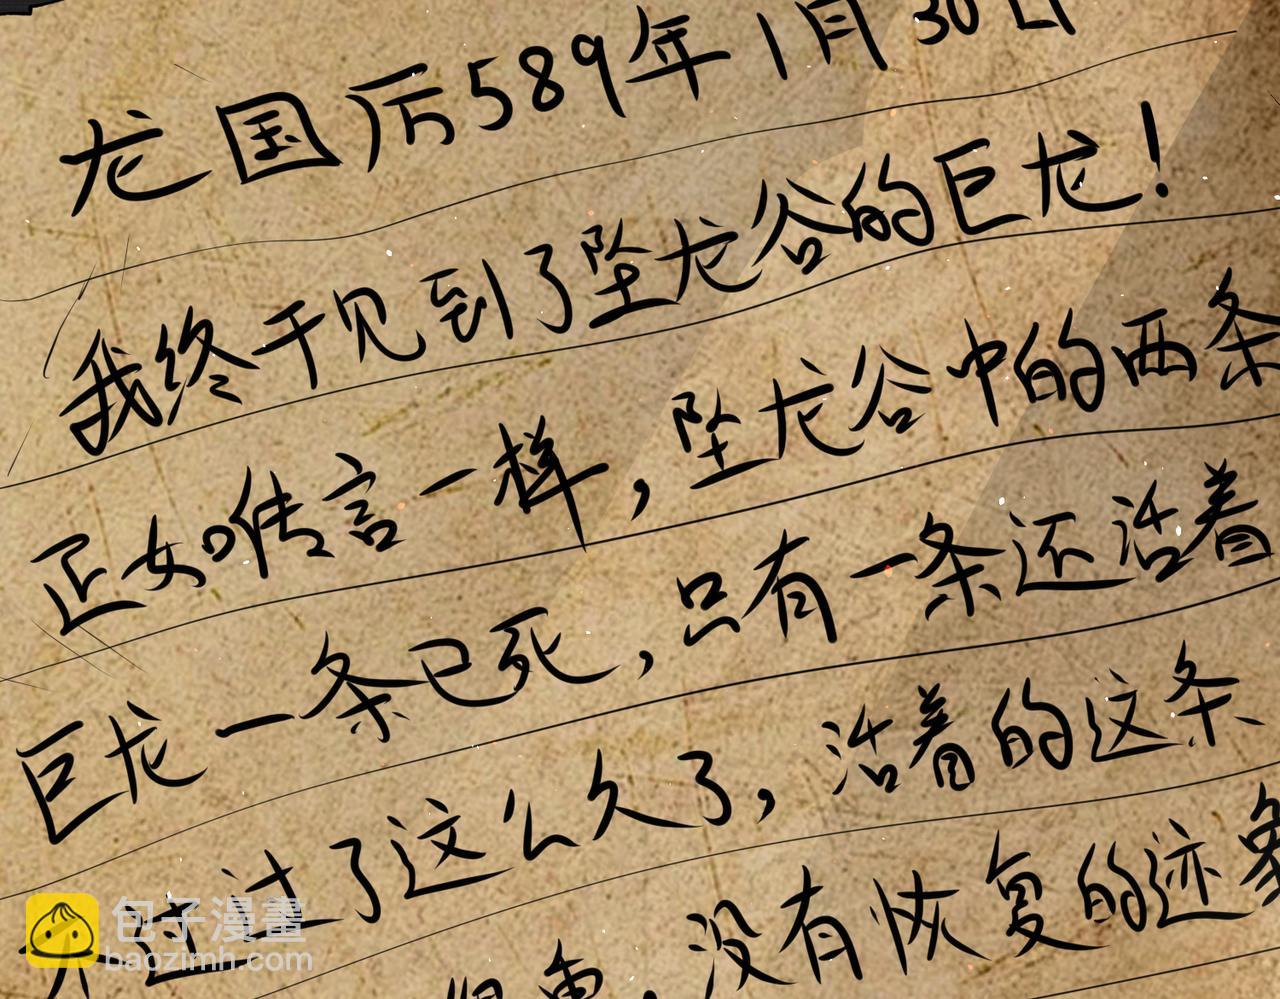 龙国历589年1月30日
我终于见到了坠龙谷的巨龙！
正如传言一样，坠龙谷中的两条
巨龙一条已死，只有一条还活着
不过过了这么久了，活着的这条
很重，没有恢复的迹象
包子漫畫
baozimh.com